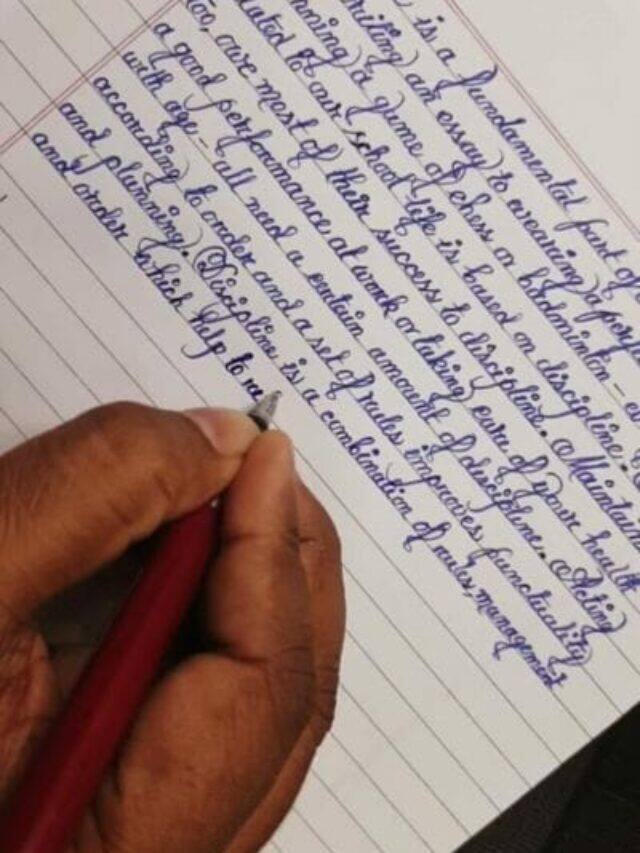 is a fundamental part of
writing an essay to wearing a
a game of chess or badminton -
to our school life is based on discipline.
too, owe most of their success to discipline. Maintain
a good performance at work or taking care of your health
with age - all need a certain amount of discipline. Acting
according to order and a set of rules improves punctuality
and planning. Discipline is a combination of rules, management
and order which help to re